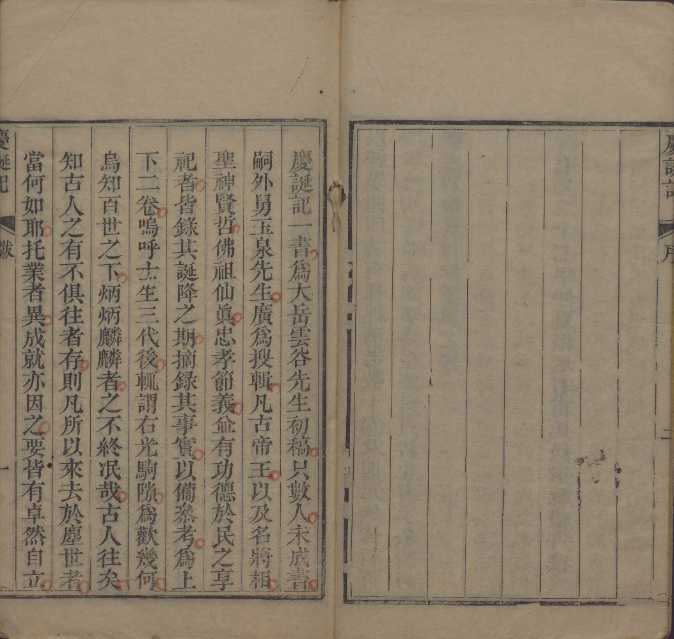 慶誕記
序
慶誕記一書爲大岳雲谷先生初稿只數人未成書
嗣外舅玉泉先生廣爲搜輯凡古帝王以及名將相
聖神賢哲佛祖仙眞忠孝節義僉有功德於民之享
祀者皆錄其誕降之期摘錄其事實以備叅考爲上
下二卷嗚呼士生三代後輒謂石光駒隙爲歡幾何
烏知百世之下炳炳麟麟者之不終冺哉古人往矣
知古人之有不俱往者存則凡所以來去於塵世者
當何如耶托業者異成就亦因之要皆有卓然自立
慶誕記
跋
一